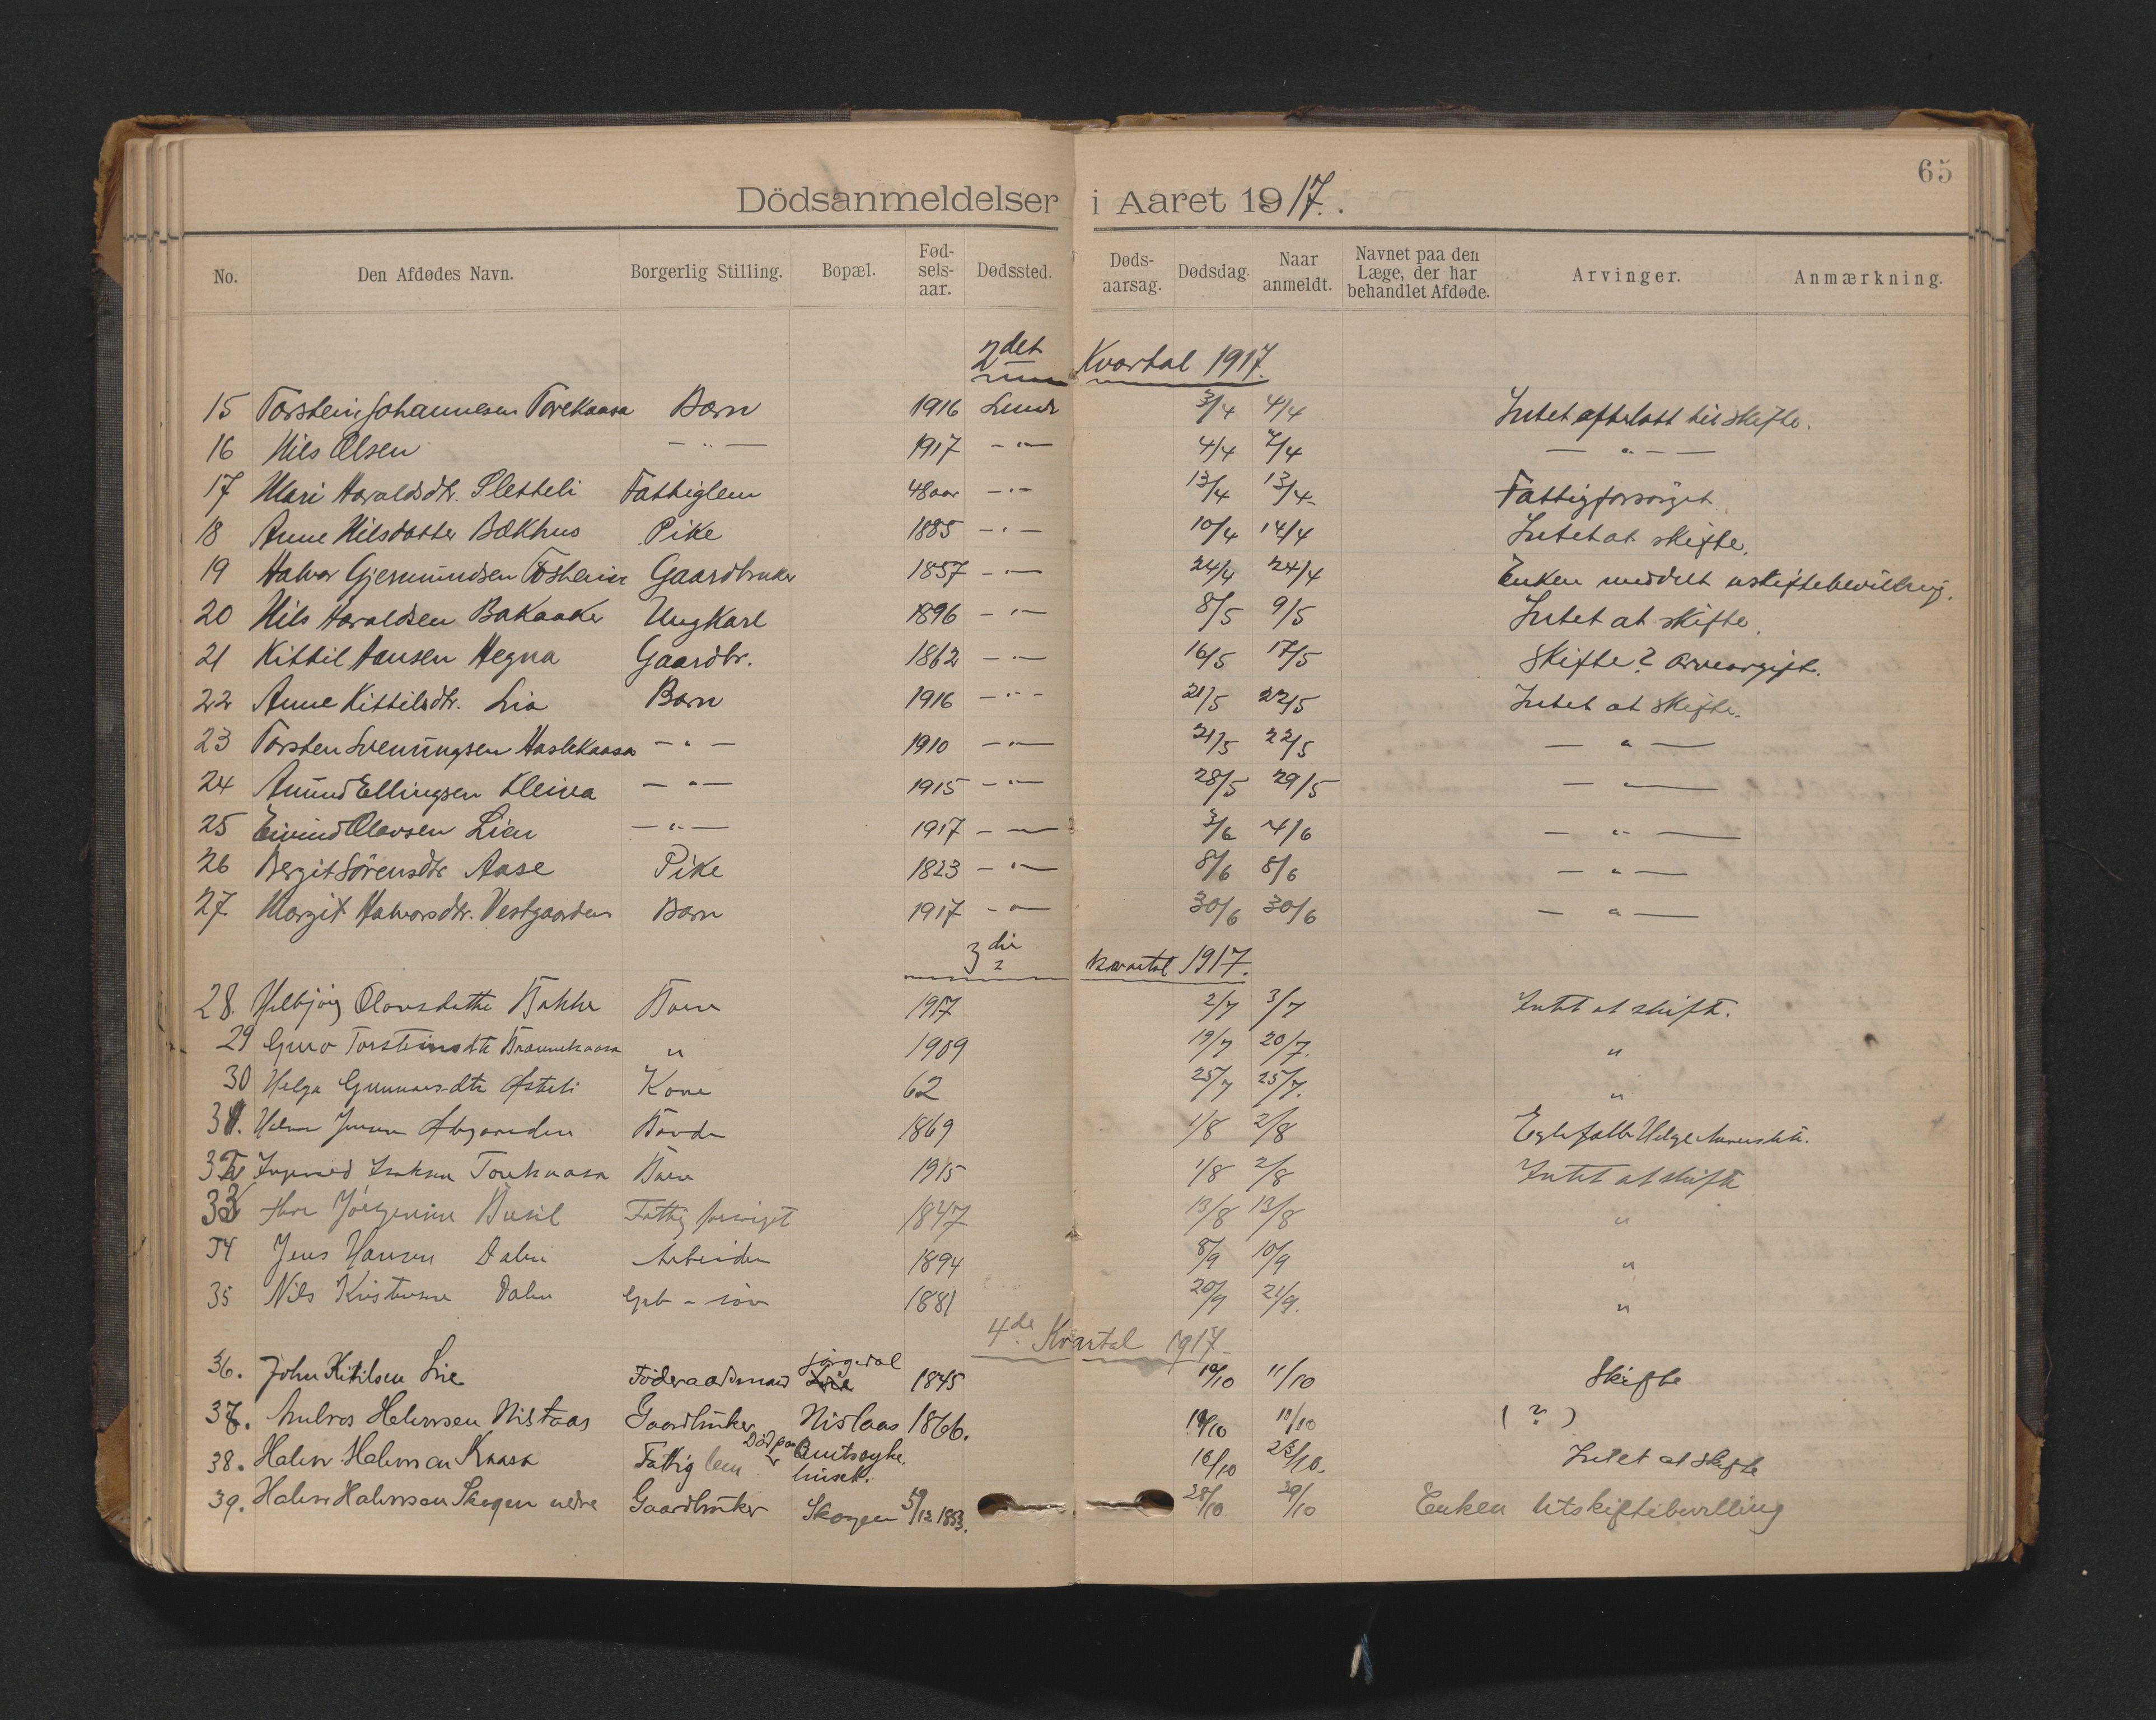 65
Dödsanmeldelser i Aaret 1917.
No. Den Afdødes Navn. Borgerlig Stilling. Bopæl. Fød-sels-aar. Dødssted. Døds-aarsag. Dødsdag. Naar anmeldt. Navnet paa den Læge, der har behandlet Afdøde. Arvinger. Anmærkning.
2det Kvartal 1917.
15 Torstein Johannesen Torekaasa Barn 1916 Lunde 3/4 4/4 Intet efterlatt til skifte.
16 Nils Olsen — " — 1917 — " — 4/4 7/4 — " — —
17 Mari Haraldsdtr. Sletteli Fattiglem 48 aar — " — 13/4 13/4 Fattigforsørget.
18 Anne Nilsdatter Bækhus Pike 1885 — " — 10/4 14/4 Intet at skifte.
19 Halvor Gjermundsen Fosheim Gaardbruker 1857 — " — 24/4 24/4 Enken meddelt uskiftebevilling.
20 Nils Haraldsen Bakaaker Ungkarl 1896 — " — 8/5 9/5 Intet at skifte.
21 Kittil Hansen Hegna Gaardbr. 1862 — " — 16/5 17/5 Skifte? Arveavgift.
22 Anne Kittilsdtr. Lia Barn 1916 — " — 21/5 22/5 Intet at skifte.
23 Torsten Svenungsen Haslekaasa — " — 1910 — " — 21/5 22/5 — " —
24 Amund Ellingsen Kleiva — " — 1915 — " — 28/5 29/5 — " —
25 Eivind Olavsen Lien — " — 1917 — " — 3/6 4/6 — " —
26 Bergit Sörensdtr Aase Pike 1823 — " — 8/6 8/6 — " —
27 Margit Halvorsdtr. Vestgaarden Barn 1917 — " — 30/6 30/6 — " —
3die kvartal 1917.
28. Olavsdatter Bakke Barn 1917 2/7 3/7 Intet at skifte.
29 Guro Torsteinsdtr " 1909 19/7 20/7. "
30 Helga Gunnarsdtr Kone 62 25/7 25/7. "
31. 1869 1/8 2/8 Helge
32 Torekaasa Barn 1915 1/8 2/8 Intet at skifte
33 Fattig forsørget 1847 13/8 13/8 "
34 Jens Hansen Dalen Arbeider 1894 8/9 10/9 "
35 Nils Kristensen Dalen Grb - søn 1881 20/9 21/9. "
4de Kvartal 1917
36. John Kittilsen Lie Föderaadsmand Jörgedal 1845 10/10 11/10 Skifte
37. Halvorsen Nistaas Gaardbruker Nistaas 1866. 10/10 11/10 ( ? )
38. Halvor Halvorsen Kaasa Fattiglem Död paa Amtssyke huset. 16/10 23/10. Intet at skifte
39. Halvor Halvorsen Skogen nedre Gaardbruker Skogen /12 1853. 28/10 29/10 Enken Utskiftebevilling